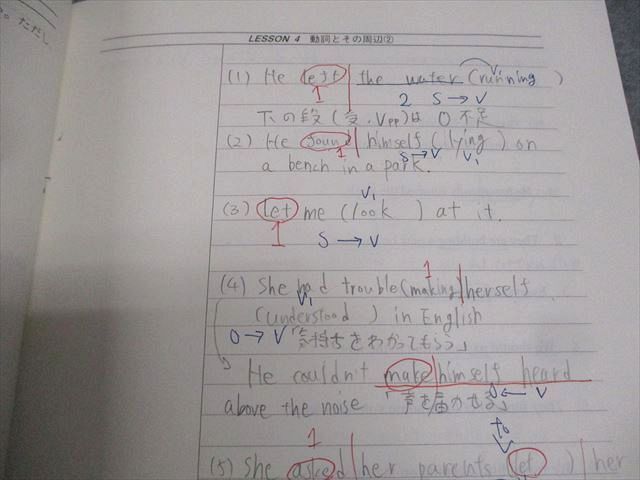 。ただし、
LESSON 4 動詞とその周辺②
(1) He left the water (running )
1 2 S→V
下の段(受. Vpp)は O不足
(2) He found himself (lying ) on
1 S→V V1
a bench in a park.
V1
(3) let me (look ) at it.
1 S→V
1
(4) She had trouble (making) herself
V1
(understood ) in English
O→V 「気持ちをわかってもらう」
He couldn't make himself heard
O←V
above the noise 「声を届かせる」
1 to V
(5) She asked her parents (let ) her